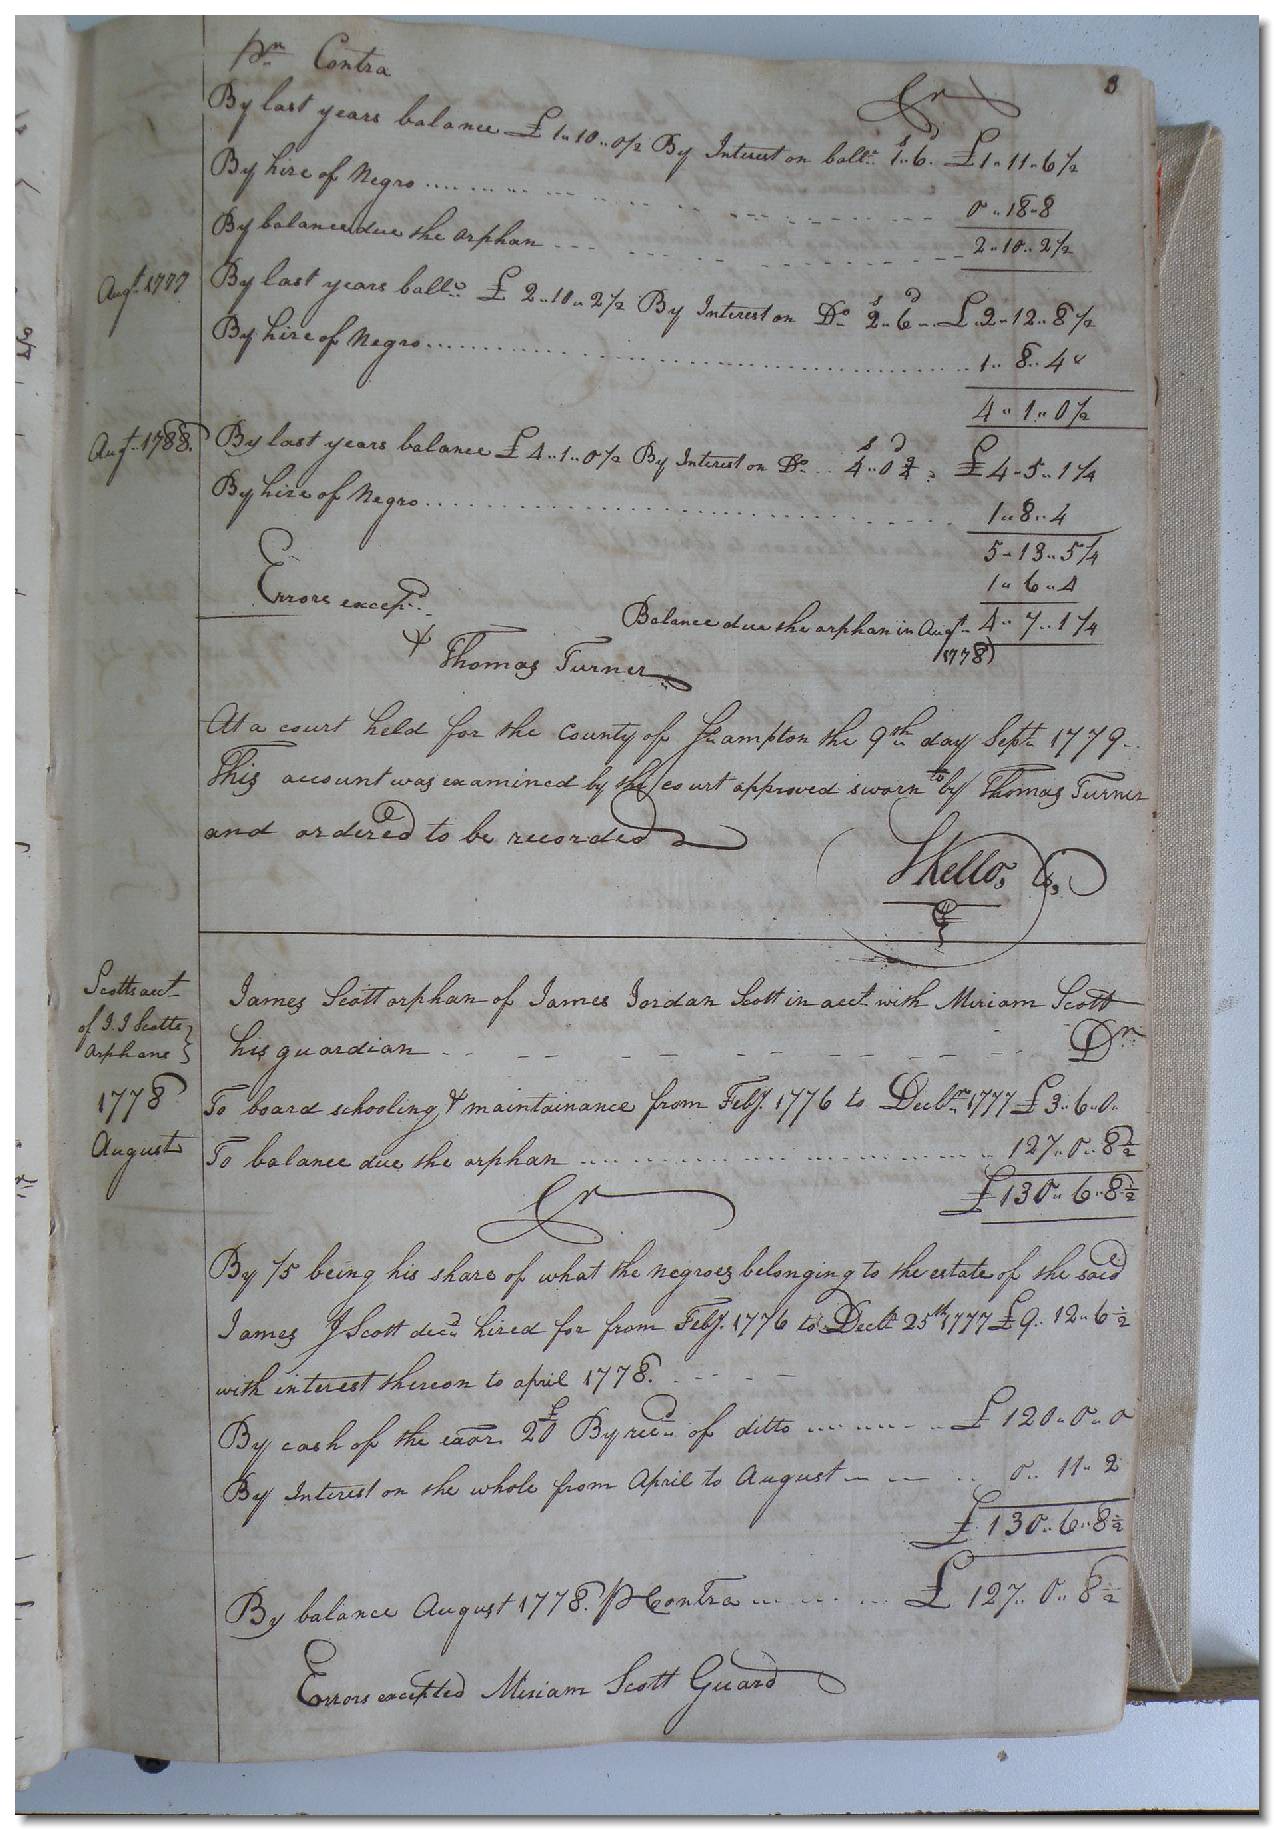 pr Contra
Cr
8
By last years balance £1..10..0½ By Interest on ballce. 1s..6d. £1..11..6½
By hire of Negro 0..18..8
By balance due the orphan 2..10..2½
Augt. 1777 By last years ballce. £2..10..2½ By Interest on Do. 2s..6d £.2..12..8½
By hire of Negro 1..8..4
4..1..0½
Augt. 1788. By last years balance £4..1..0½ By Interest on Do. 4s..0¾d £4..5..1¼
By hire of Negro 1..8..4
5..13..5¼
1..6..4
Errors exceptd.
Balance due the orphan in Augt. 4..7..1¼
1778)
Thomas Turner
At a court held for the County of Southampton the 9th day Septr. 1779..
This account was examined by the court approved sworn to by Thomas Turner
and ordered to be recorded
SKello, Cs.
Scotts acct
of J. J Scotts
orphans
James Scott orphan of James Jordan Scott in acct. with Miriam Scott
his guardian Dr.
1778 To board schooling & maintainance from Feby. 1776 to Decbr. 1777 £3..6..0..
August To balance due the orphan 127..0..8½
£130..6..8½
Cr
By 1/5 being his share of what the negroes belonging to the estate of the said
James J Scott decd. hired for from Feby. 1776 to Decbr 25th 1777 £9..12..6½
with interest thereon to april 1778.
By cash of the exor. 20£ By recd. of ditto £120..0..0
By Interest on the whole from April to August 0..11..2
£130..6..8½
By balance August 1778. pContra £127..0..8½
Errors excepted Miriam Scott Guard